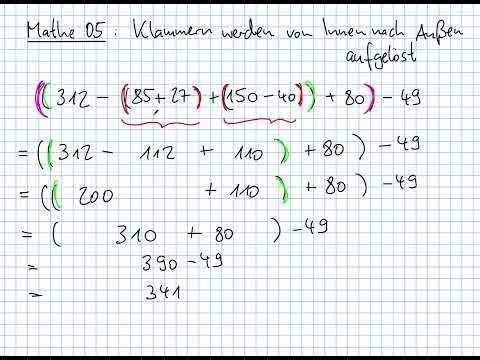 Mathe 05: Klammern werden von Innen nach Außen
aufgelöst
((312 - (85 + 27) + (150 - 40)) + 80) - 49
= ((312 - 112 + 110) + 80) - 49
= ((200 + 110) + 80) - 49
= (310 + 80) - 49
= 390 - 49
= 341